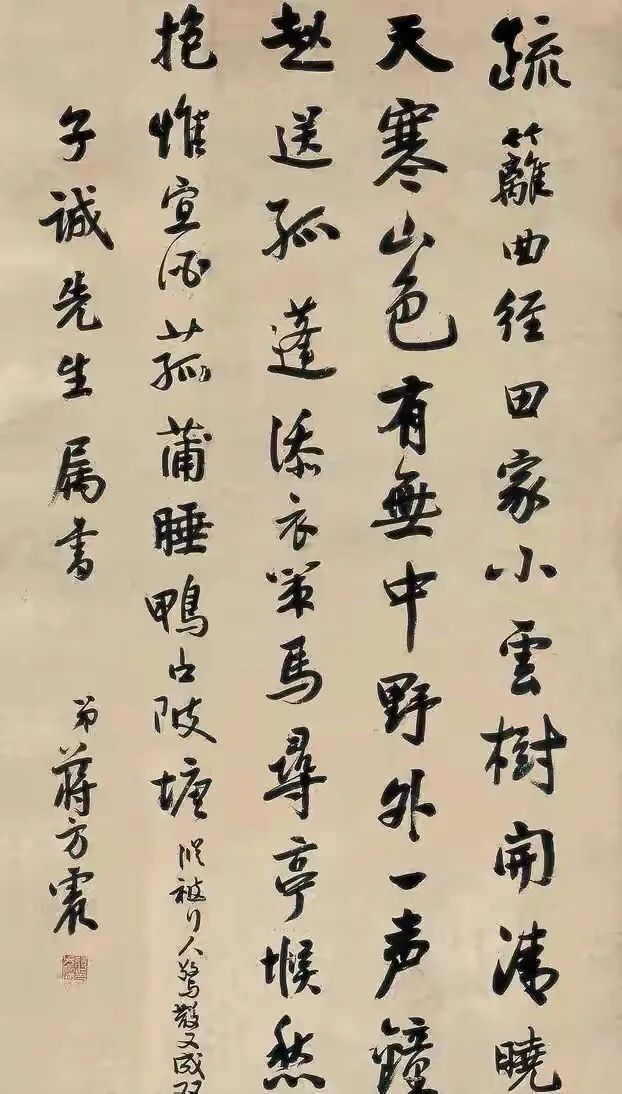 疏籬曲径田家小雲樹開清曉
天寒山色有無中野外一声鐘
起送孤蓬添衣策馬尋亭堠愁
抱惟宜酒菰蒲睡鴨占陂塘縱被行人驚散又成双
子誠先生属書
弟蔣方震